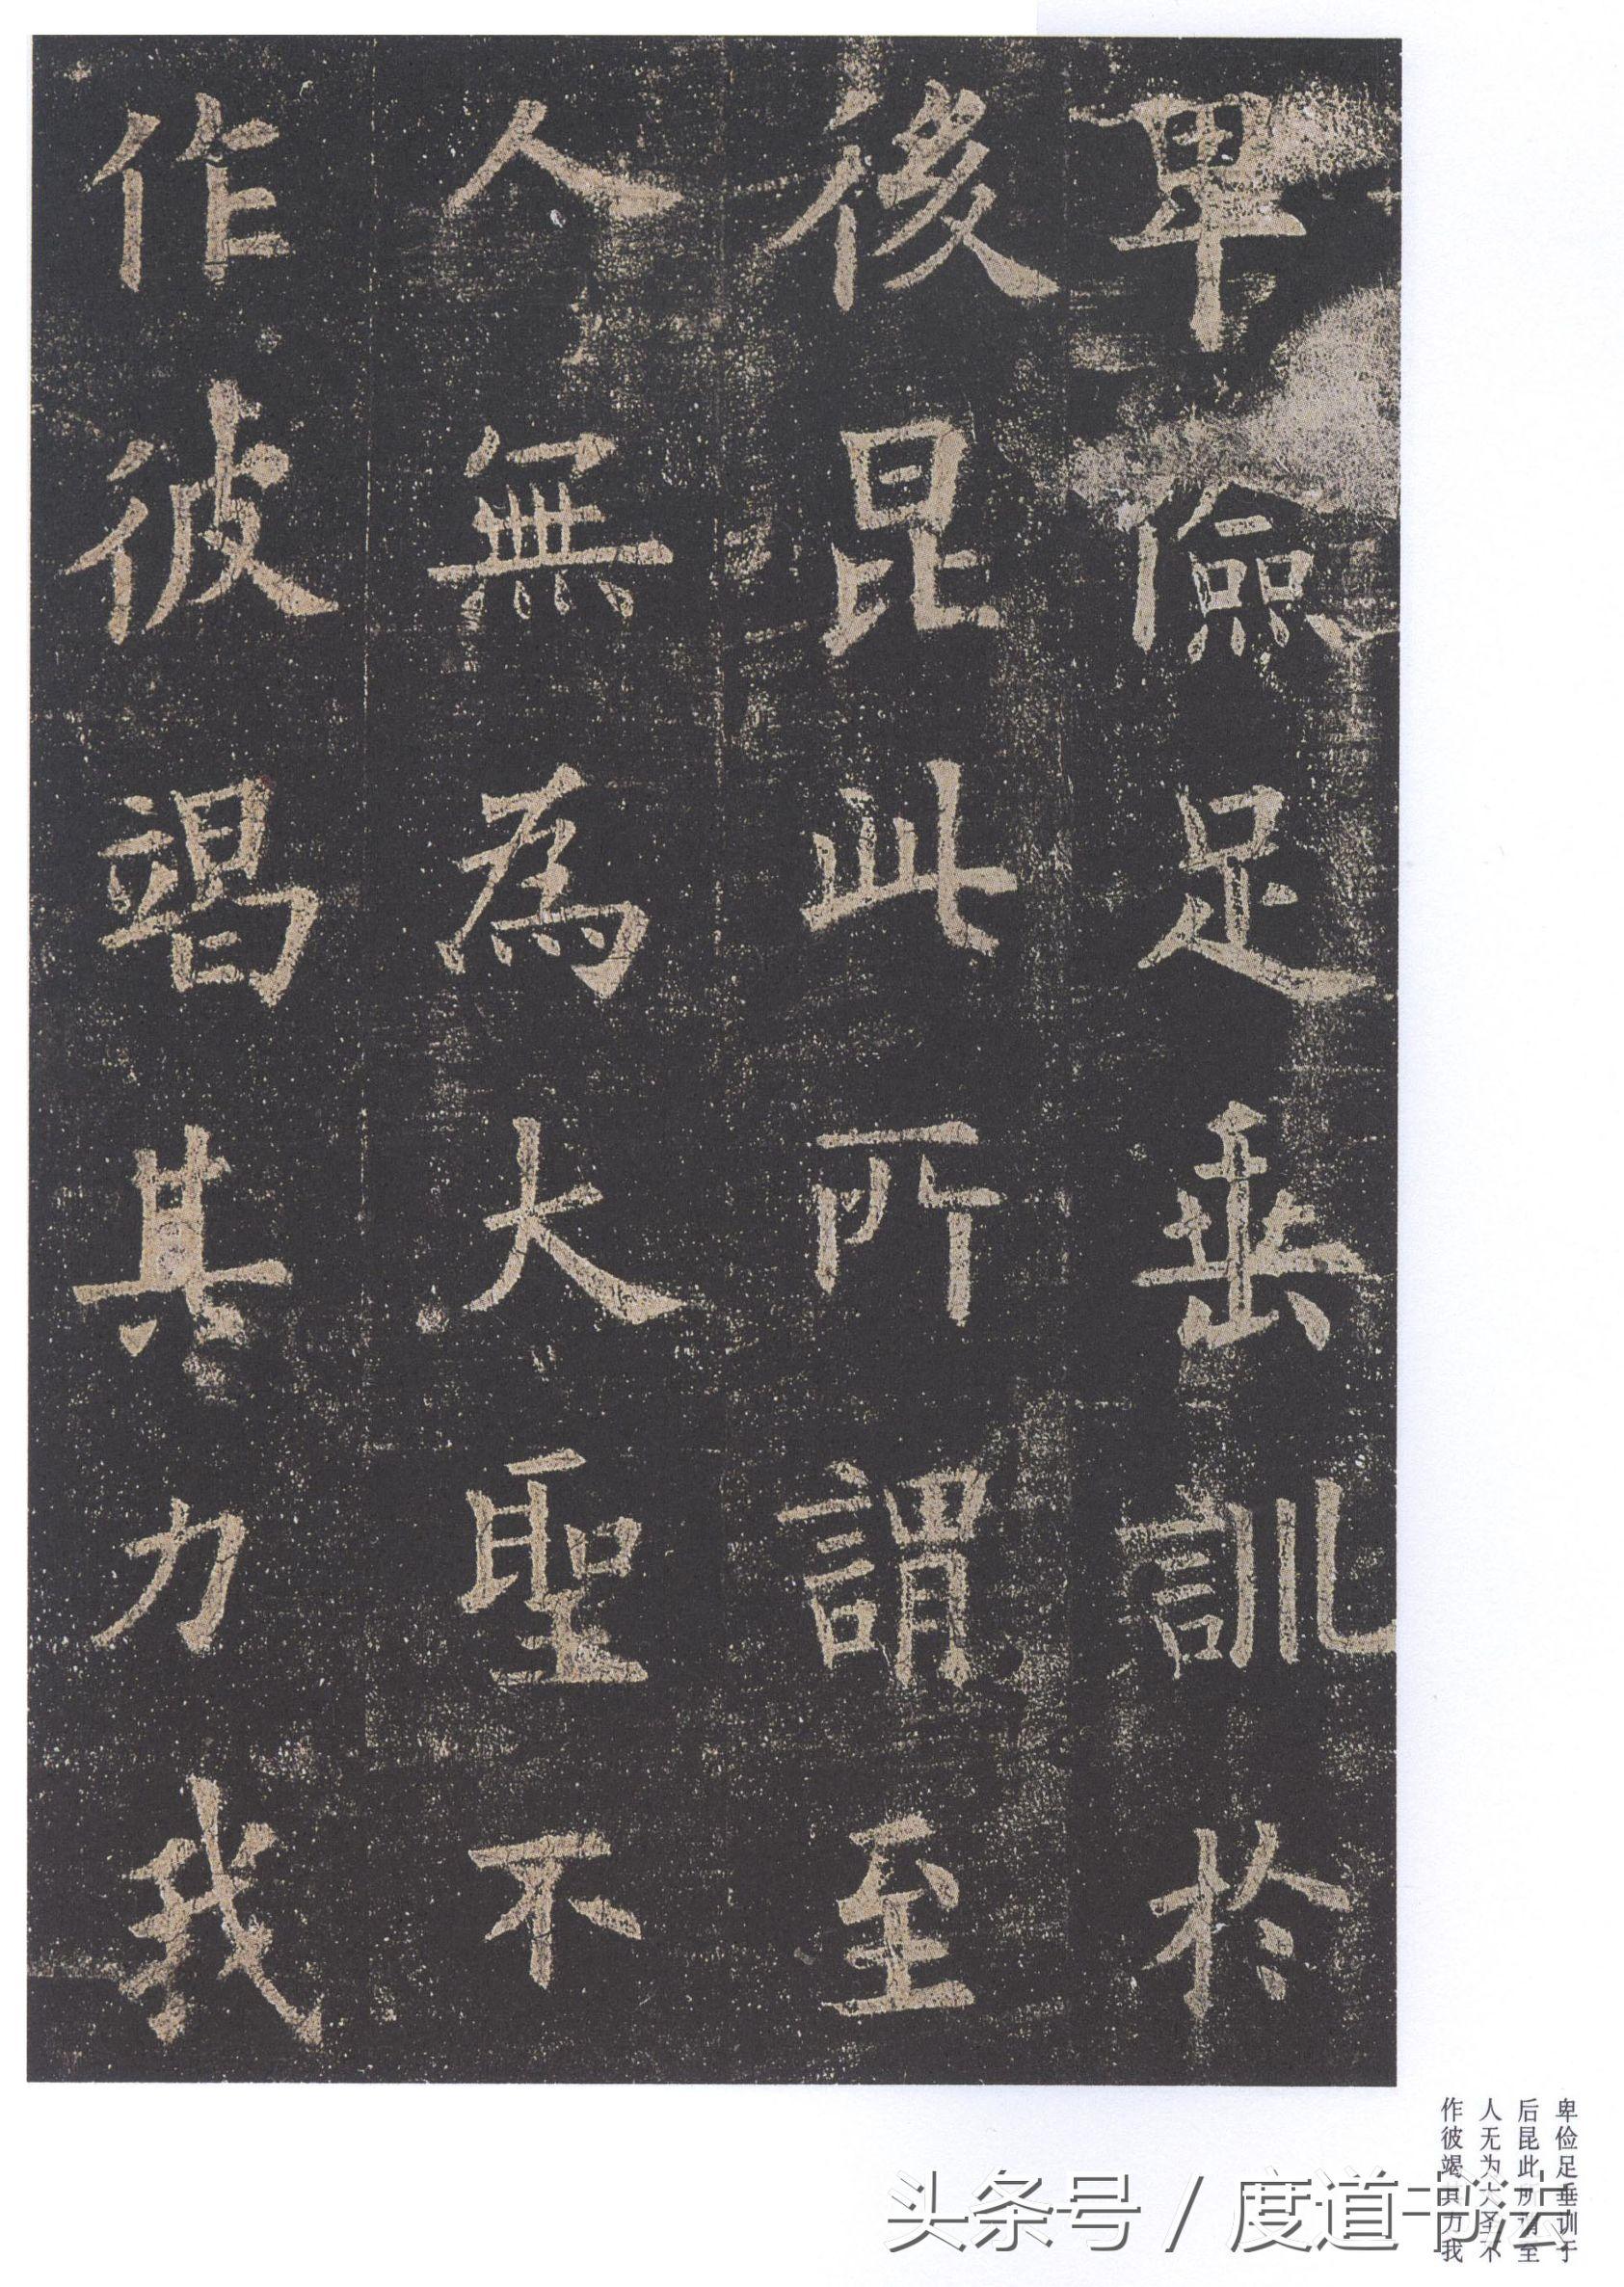 卑儉足垂訓於
後昆此所謂至
人無為大聖不
作彼竭其力我
卑俭足垂训于
后昆此所谓至
人无为大圣不
作彼竭其力我
头条号/度道书法